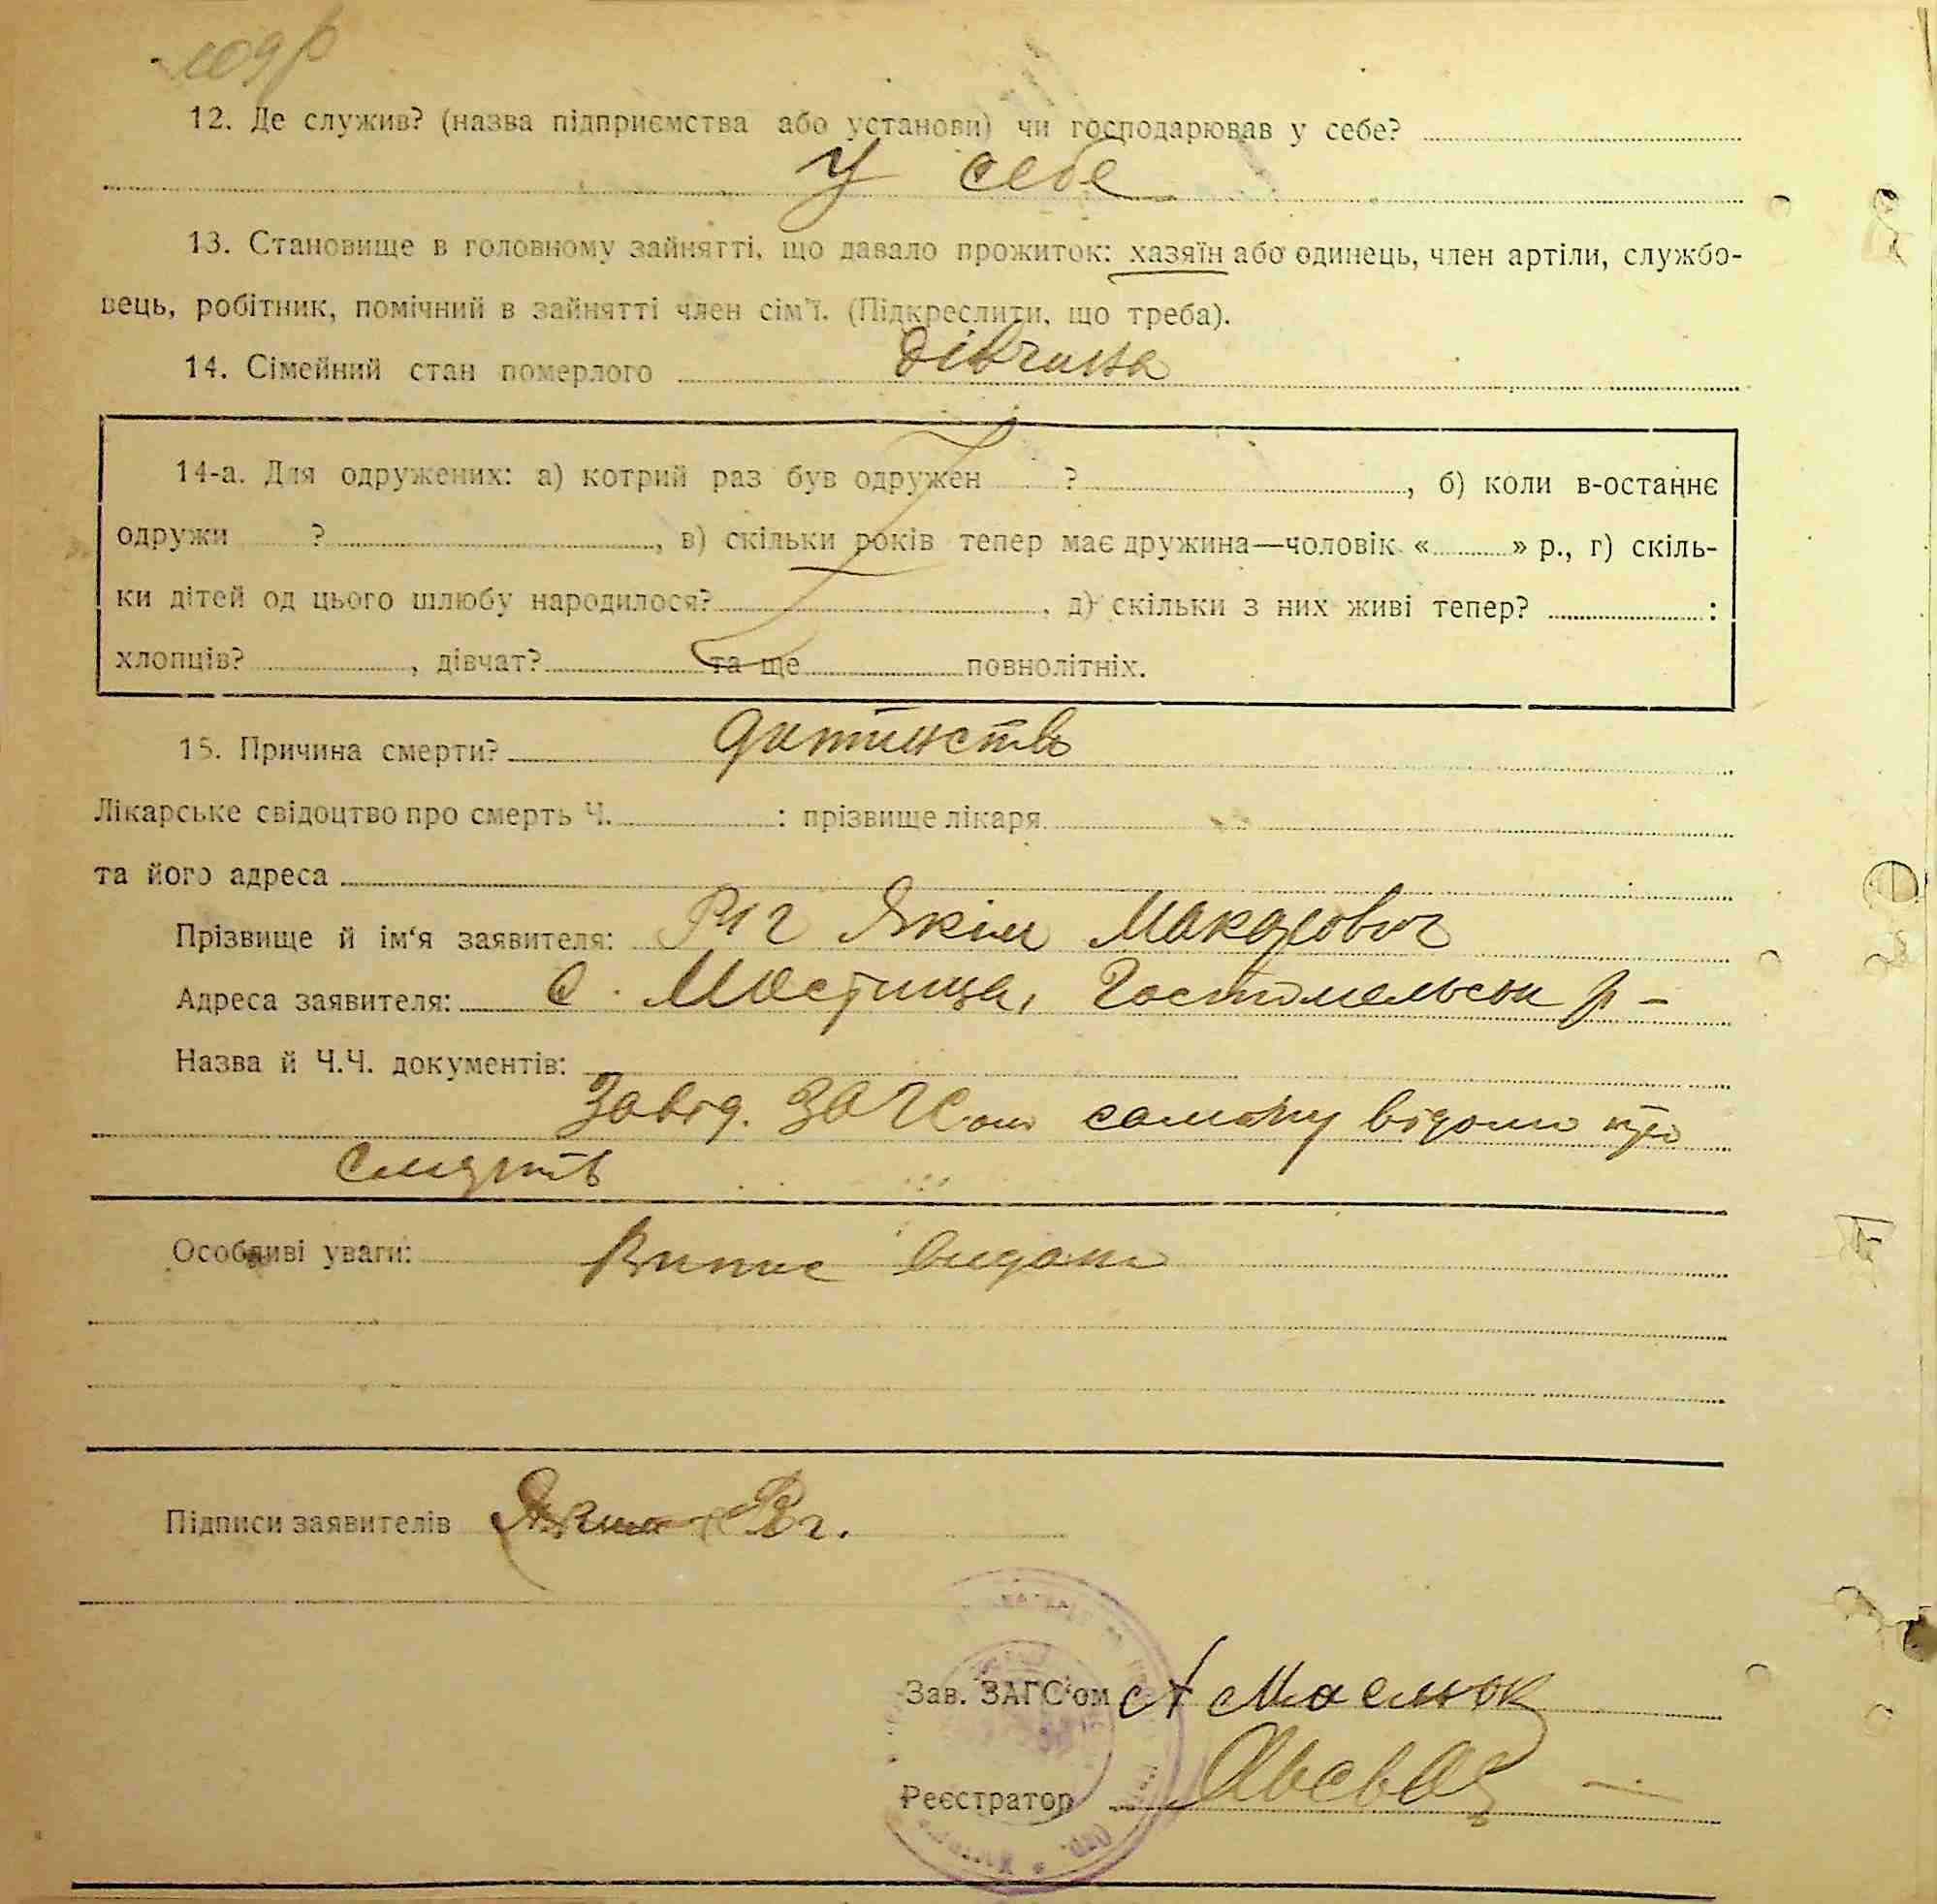 12. Де служив? (назва підприємства або установи) чи господарював у себе?
у себе
13. Становище в головному зайнятті, що давало прожиток: хазяїн або одинець, член артіли, службо-
вець, робітник, помічний в зайнятті член сім'ї. (Підкреслити, що треба).
14. Сімейний стан померлого дівчина
14-а. Для одружених: а) котрий раз був одружен ?, б) коли в-останнє
одружи ?, в) скільки років тепер має дружина—чоловік « » р., г) скіль-
ки дітей од цього шлюбу народилося?, д) скільки з них живі тепер? :
хлопців?, дівчат? та ще повнолітніх.
15. Причина смерти? дитинство
Лікарське свідоцтво про смерть Ч. : прізвище лікаря
та його адреса
Прізвище й ім'я заявителя: Ріг Якім Макарович
Адреса заявителя: с. Мостище, Гостомельськ р-
Назва й Ч.Ч. документів:
Завід. ЗАГСом самому відомо про
смерть
Особливі уваги: Випис видано
Підписи заявителів Яким Ріг.
Зав. ЗАГС'ом А Маслюк
Реєстратор